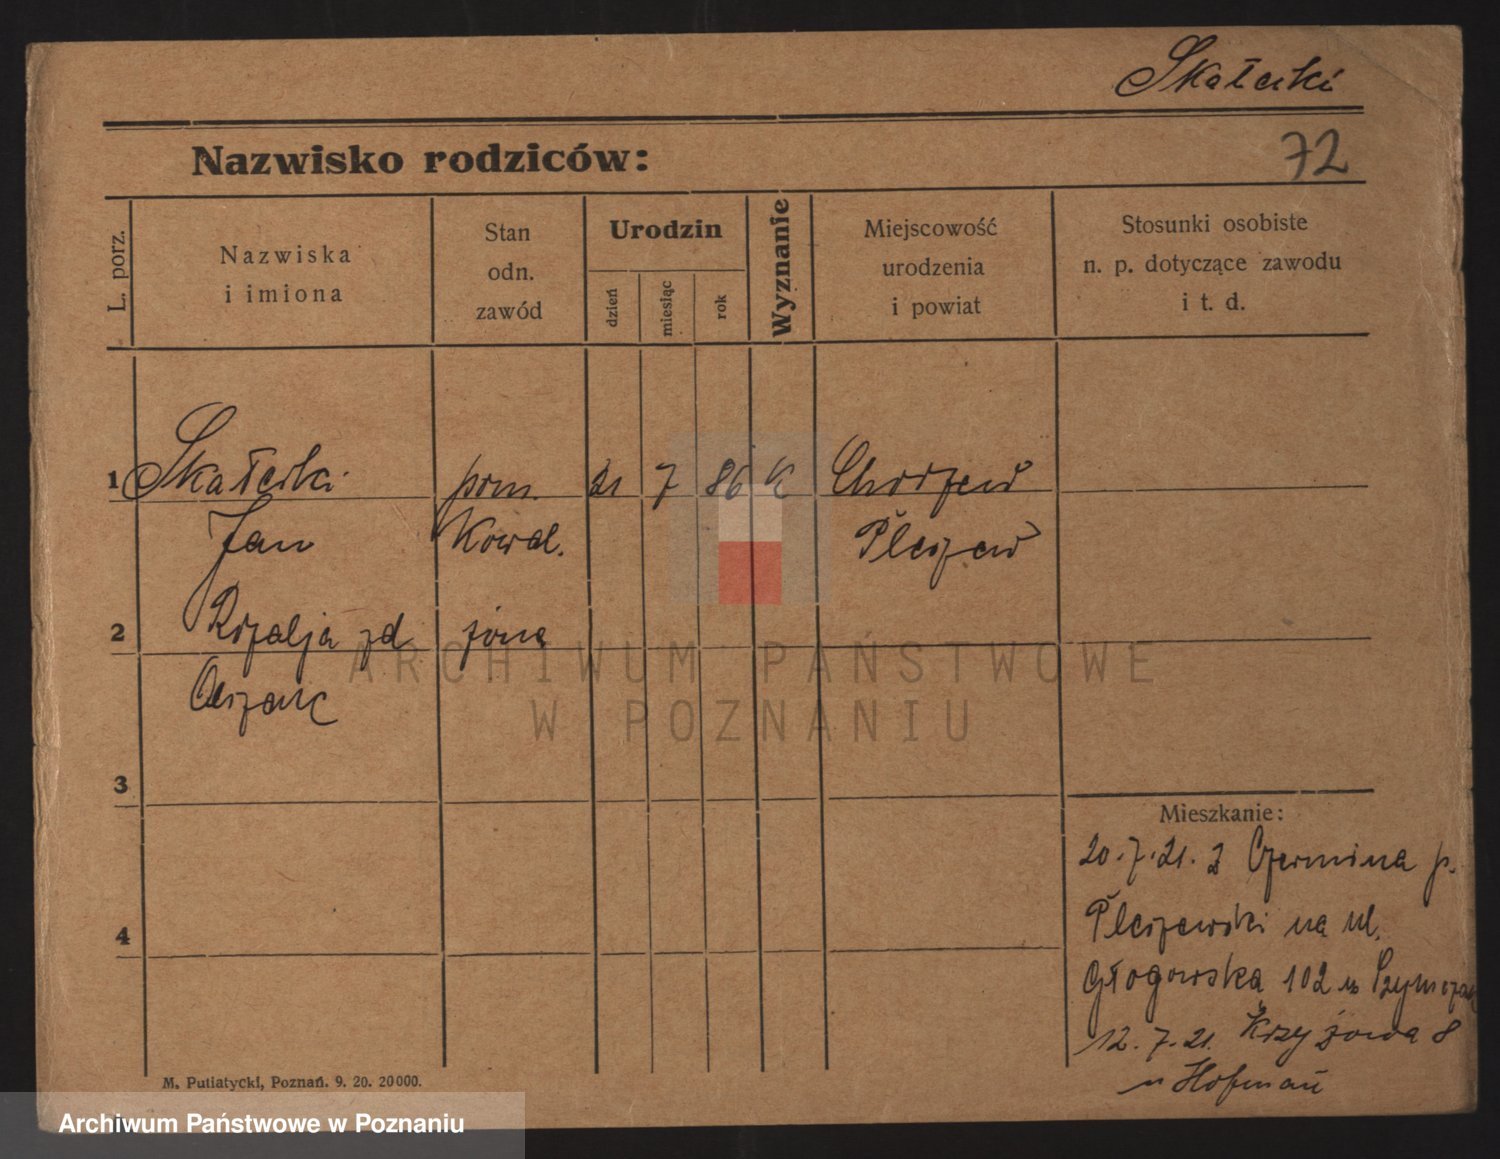 Skałecki
Nazwisko rodziców:
72
L. porz.
Nazwiska
i imiona
Stan
odn.
zawód
Urodzin
dzień
miesiąc
rok
Wyznanie
Miejscowość
urodzenia
i powiat
Stosunki osobiste
n. p. dotyczące zawodu
i t. d.
1 Skałecki pom. 21 7 86 K Chorzew
Jan Kowal. Pleszew
2 Rozalja zd żona
3
4
Mieszkanie:
20.7.21. z Czermina p.
Pleszewski na ul.
Głogowska 102 u Szymczak
12.7.21. Krzyżowa 8
u Hofman
M. Putiatycki, Poznań. 9. 20. 20000.
ARCHIWUM PAŃSTWOWE
W POZNANIU
Archiwum Państwowe w Poznaniu